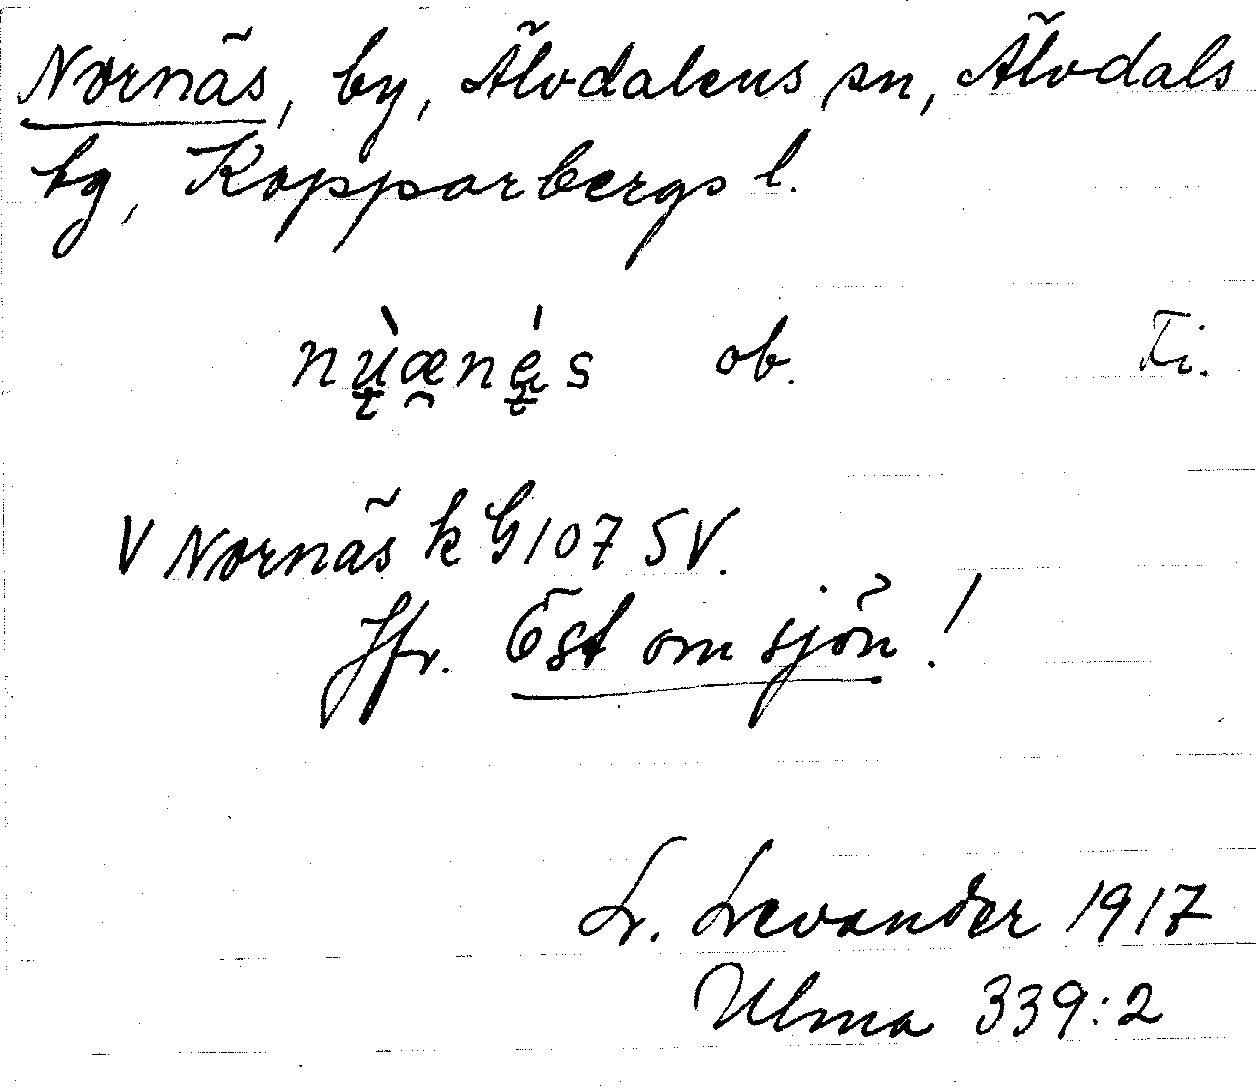 Nornäs, by, Älvdalens sn, Älvdals
hg, Kopparbergs l.
nù̯æ̯né̯s ob. Ti.
V Nornäs k G 107 SV.
Jfr. Öst om sjön!
L. Levander 1917
Ulma 339:2